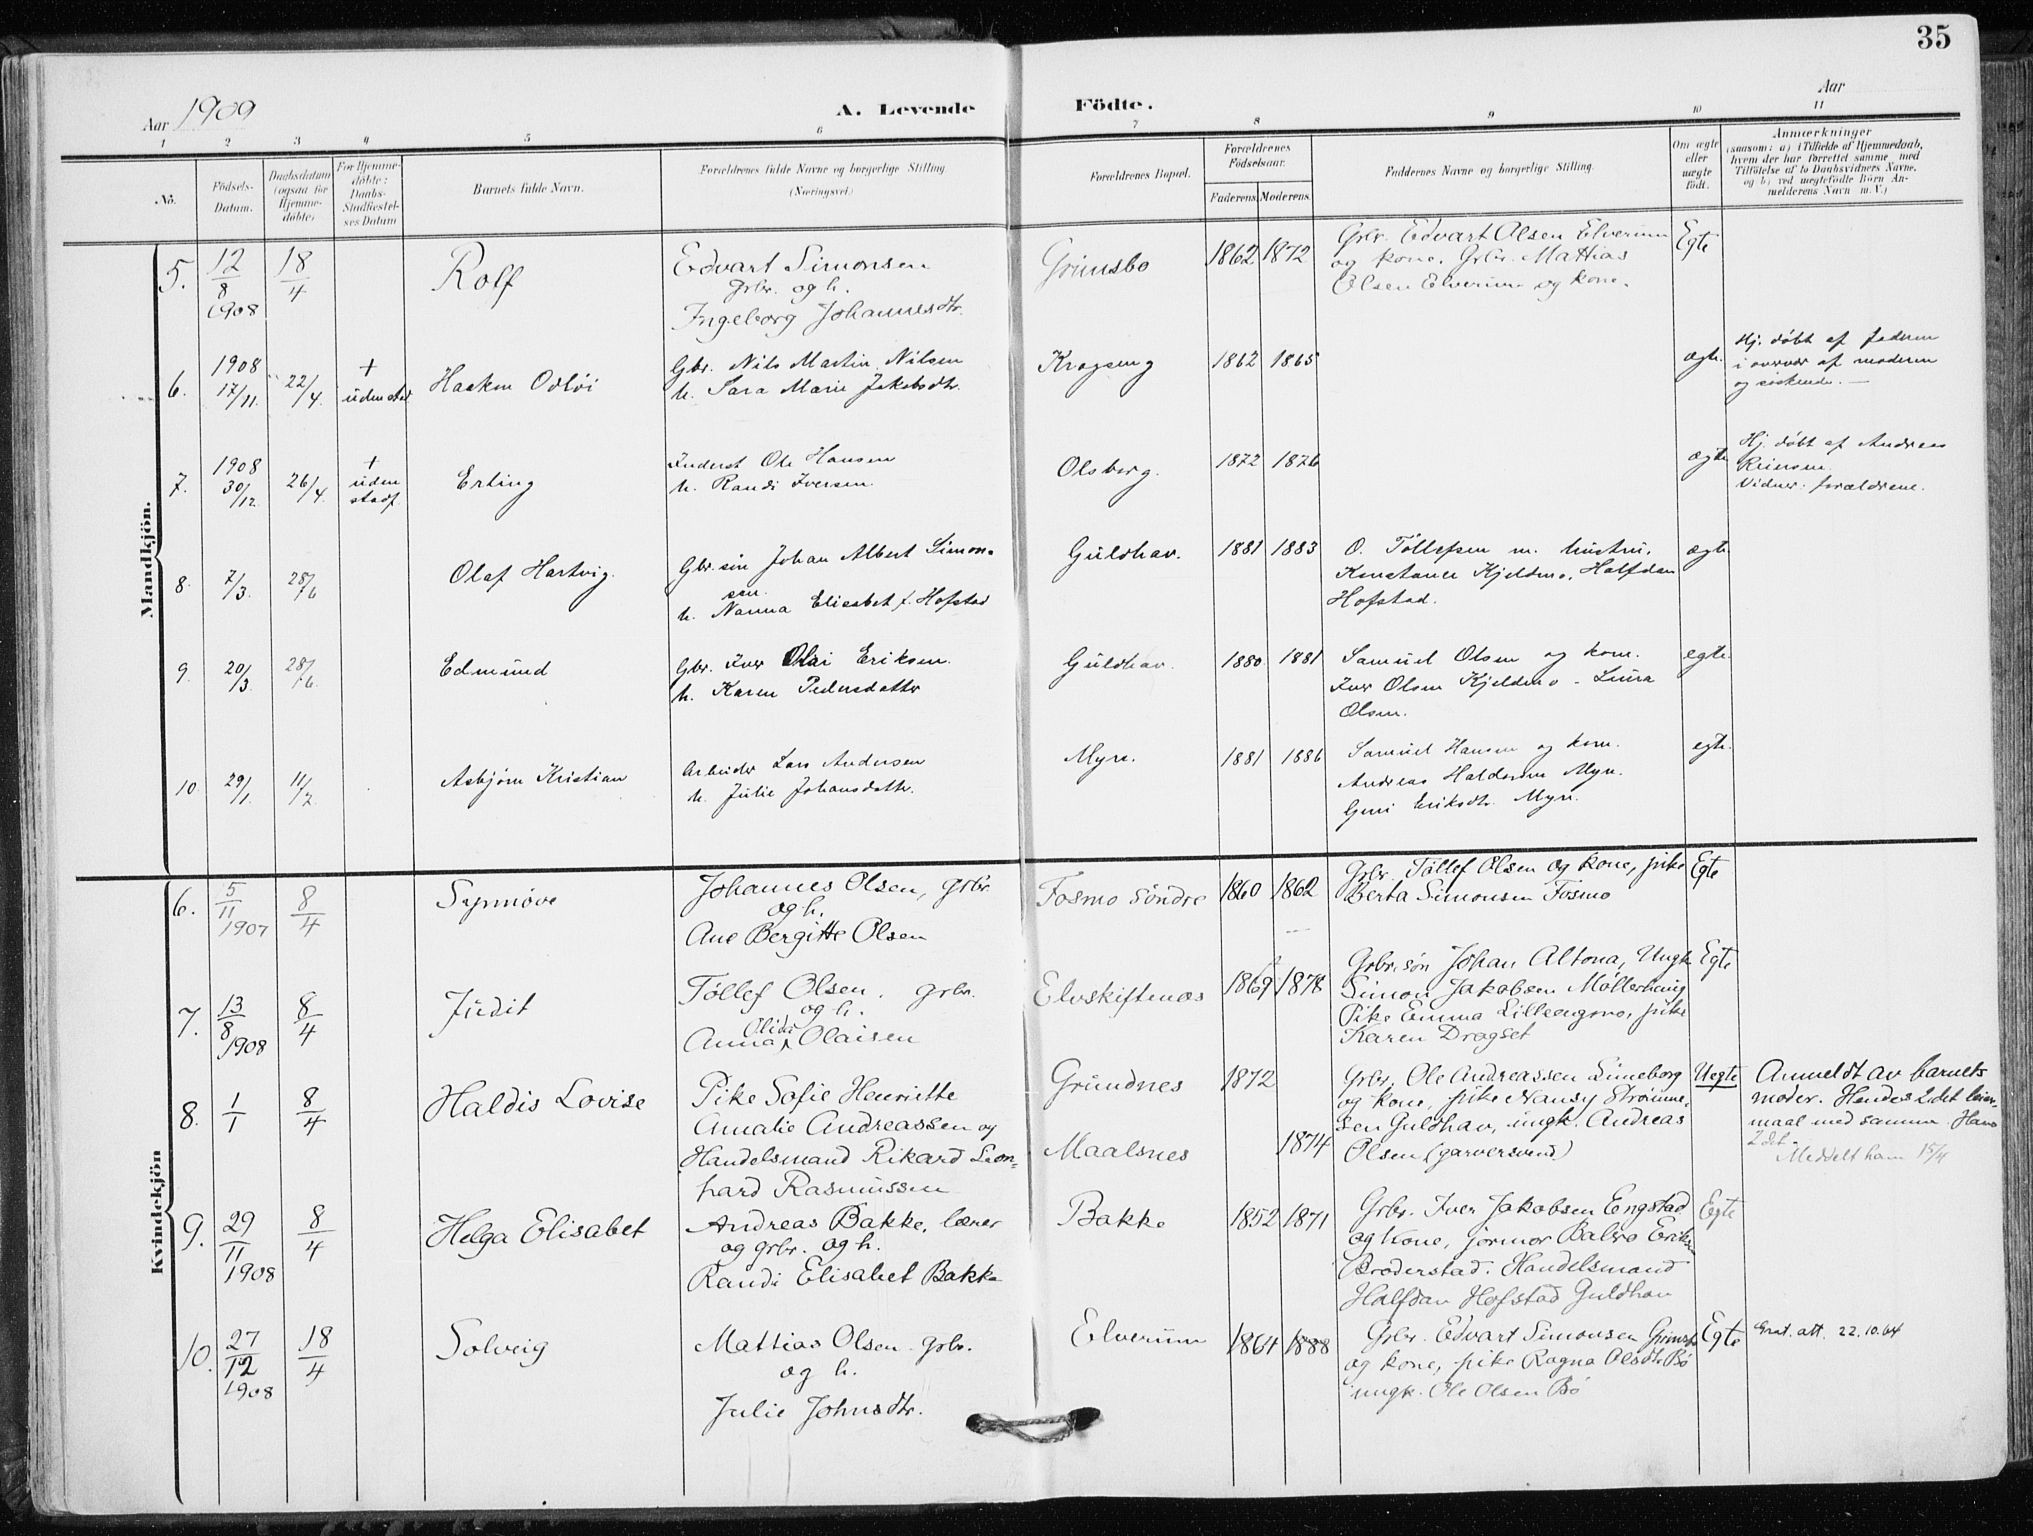 35
Aar 1909
A. Levende Födte.
Aar
1 2 3 4 5 6 7 8 9 10 11
No.
Födsels-Datum.
Daabsdatum (ogsaa for Hjemme-döbte)
For Hjemme-döbte: Daabs-Stadfæstel-ses Datum
Barnets fulde Navn.
Forældrenes fulde Navne og borgerlige Stilling (Næringsvei)
Forældrenes Bopæl.
Forældrenes Födselsaar.
Faderens Moderens.
Faddernes Navne og borgerlige Stilling.
Om ægte eller uægte födt.
Anmærkninger
(saasom: a) i Tilfælde af Hjemmedaab, hvem der har forrettet samme med Tilföielse af to Daabsvidners Navne, og b) ved uægtefödte Börn An-melderens Navn m. V.)
Mandkjön.
5. 12/8 1908 18/4 Rolf
Edvart Simonsen
grbr. og h.
Ingeborg Johannesdtr.
Grimsbo 1862 1872
Grbr. Edvart Olsen Elverum
og kone. Grbr. Mattias
Olsen Elverum og kone.
Egte
6. 1908 17/11. 22/4. + uden stad Haakon Odløi
Gbr. Nils Martin Nilsen
h. Sara Marie Jakobsdtr.
Krogseng 1862 1865
ægte.
Hj. døbt af faderen
i overvær af moderen
og søskende. —
7. 1908 30/12. 26/4. + uden stadf. Erling
Inderst Ole Hansen
h. Randi Iversen.
Olsborg. 1872 1876
ægte
Hj. døbt af Andreas
Reiersen.
Vidner: forældrene.
8. 7/3. 28/6 Olaf Hartvig.
Gbr. søn Johan Albert Simon-
sen.
h. Nanna Elisabet f. Hofstad
Guldhav. 1881 1883
O. Tollefsen m. hustru.
Konstance Kjeldmo. Halfdan
Hofstad.
ægte
9. 20/3. 28/6. Edmund
Gbr. Iver Olai Eriksen.
h. Karen Pedersdatter
Guldhav. 1880 1881
Samuel Olsen og kone.
Iver Olsen Kjeldmo - Luira
Olsen.
egte.
10 29/1. 11/2. Asbjørn Kristian
Arbeider Lars Andersen
h. Julie Johansdatter.
Myre. 1881 1886
Samuel Hansen og kone.
Andreas Haldorsen Myre.
Guri Eriksdtr. Myre.
egte.
Kvindekjön
6. 5/11 1907 8/4 Synnøve
Johannes Olsen, grbr.
og h.
Ane Bergitte Olsen
Fosmo søndre 1860 1862
Grbr. Tollef Olsen og kone, pike
Berta Simonsen Fosmo
Egte
7. 13/8 1908 8/4 Judit
Tollef Olsen. grbr.
og h.
Anna Olida Olaisen
Elvskiftenæs 1869 1878
Grbr.søn Johan Altona, Ungk
Simon Jakobsen Møllerhaug
Pike Emma Lillengmo, pike
Karen Dragset
Egte
8. 1/1 8/4 Haldis Lovise
Pike Sofie Henriette
Amalie Andreassen og
Handelsmand Rikard Leon-
hard Rasmussen
Grundnes 1872
Maalsnes 1874
Grbr. Ole Andreassen Luneborg
og kone, pike Nansy Strømme-
sen Guldhav, ungk. Andreas
Olsen (garversvend)
Uegte
Anmeldt av barnets
moder. Hendes 2det leier-
maal med samme. Hans
2det.
Meddelt ham 15/4
9. 29/11 1908 8/4 Helga Elisabet
Andreas Bakke, lærer
og grbr. og h.
Randi Elisabet Bakke
Bakke 1852 1871
Grbr. Iver Jakobsen Engstad
og kone, jormor Balbro Eriksen
Broderstad. Handelsmand
Halfdan Hofstad Guldhav
Egte
10. 27/12 1908 18/4 Solveig
Mattias Olsen grbr.
og h.
Julie Johnsdtr.
Elverum 1864 1888
Grbr. Edvart Simonsen Grimsbo
og kone, pike Ragna Olsdtr. Bø
ungk. Ole Olsen Bø
Egte
Grat. att. 22.10.64